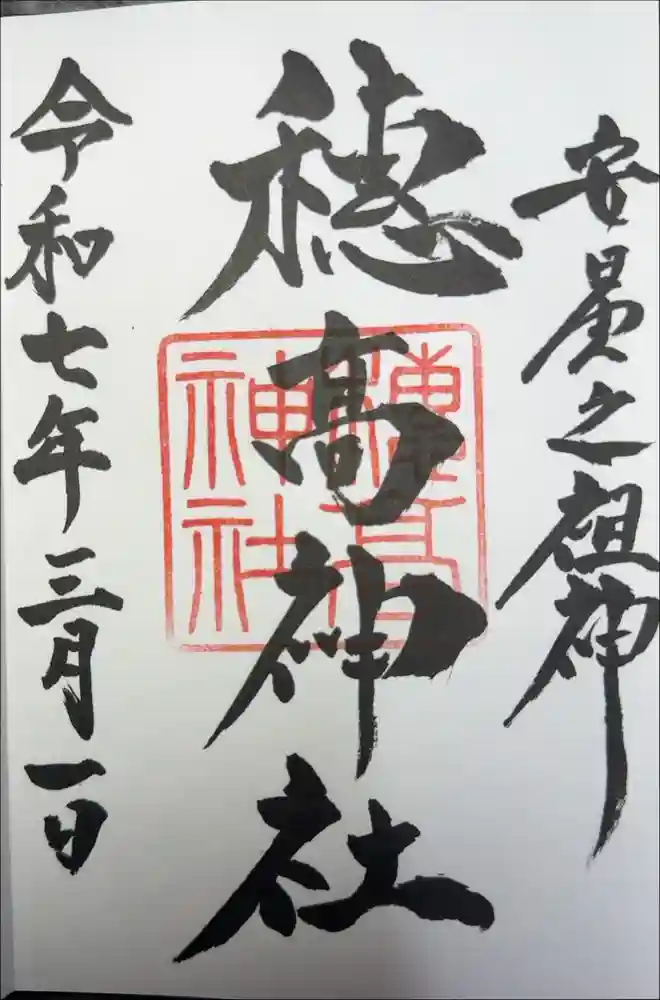 安曇之祖神
穂高神社
穂高神社
令和七年三月一日